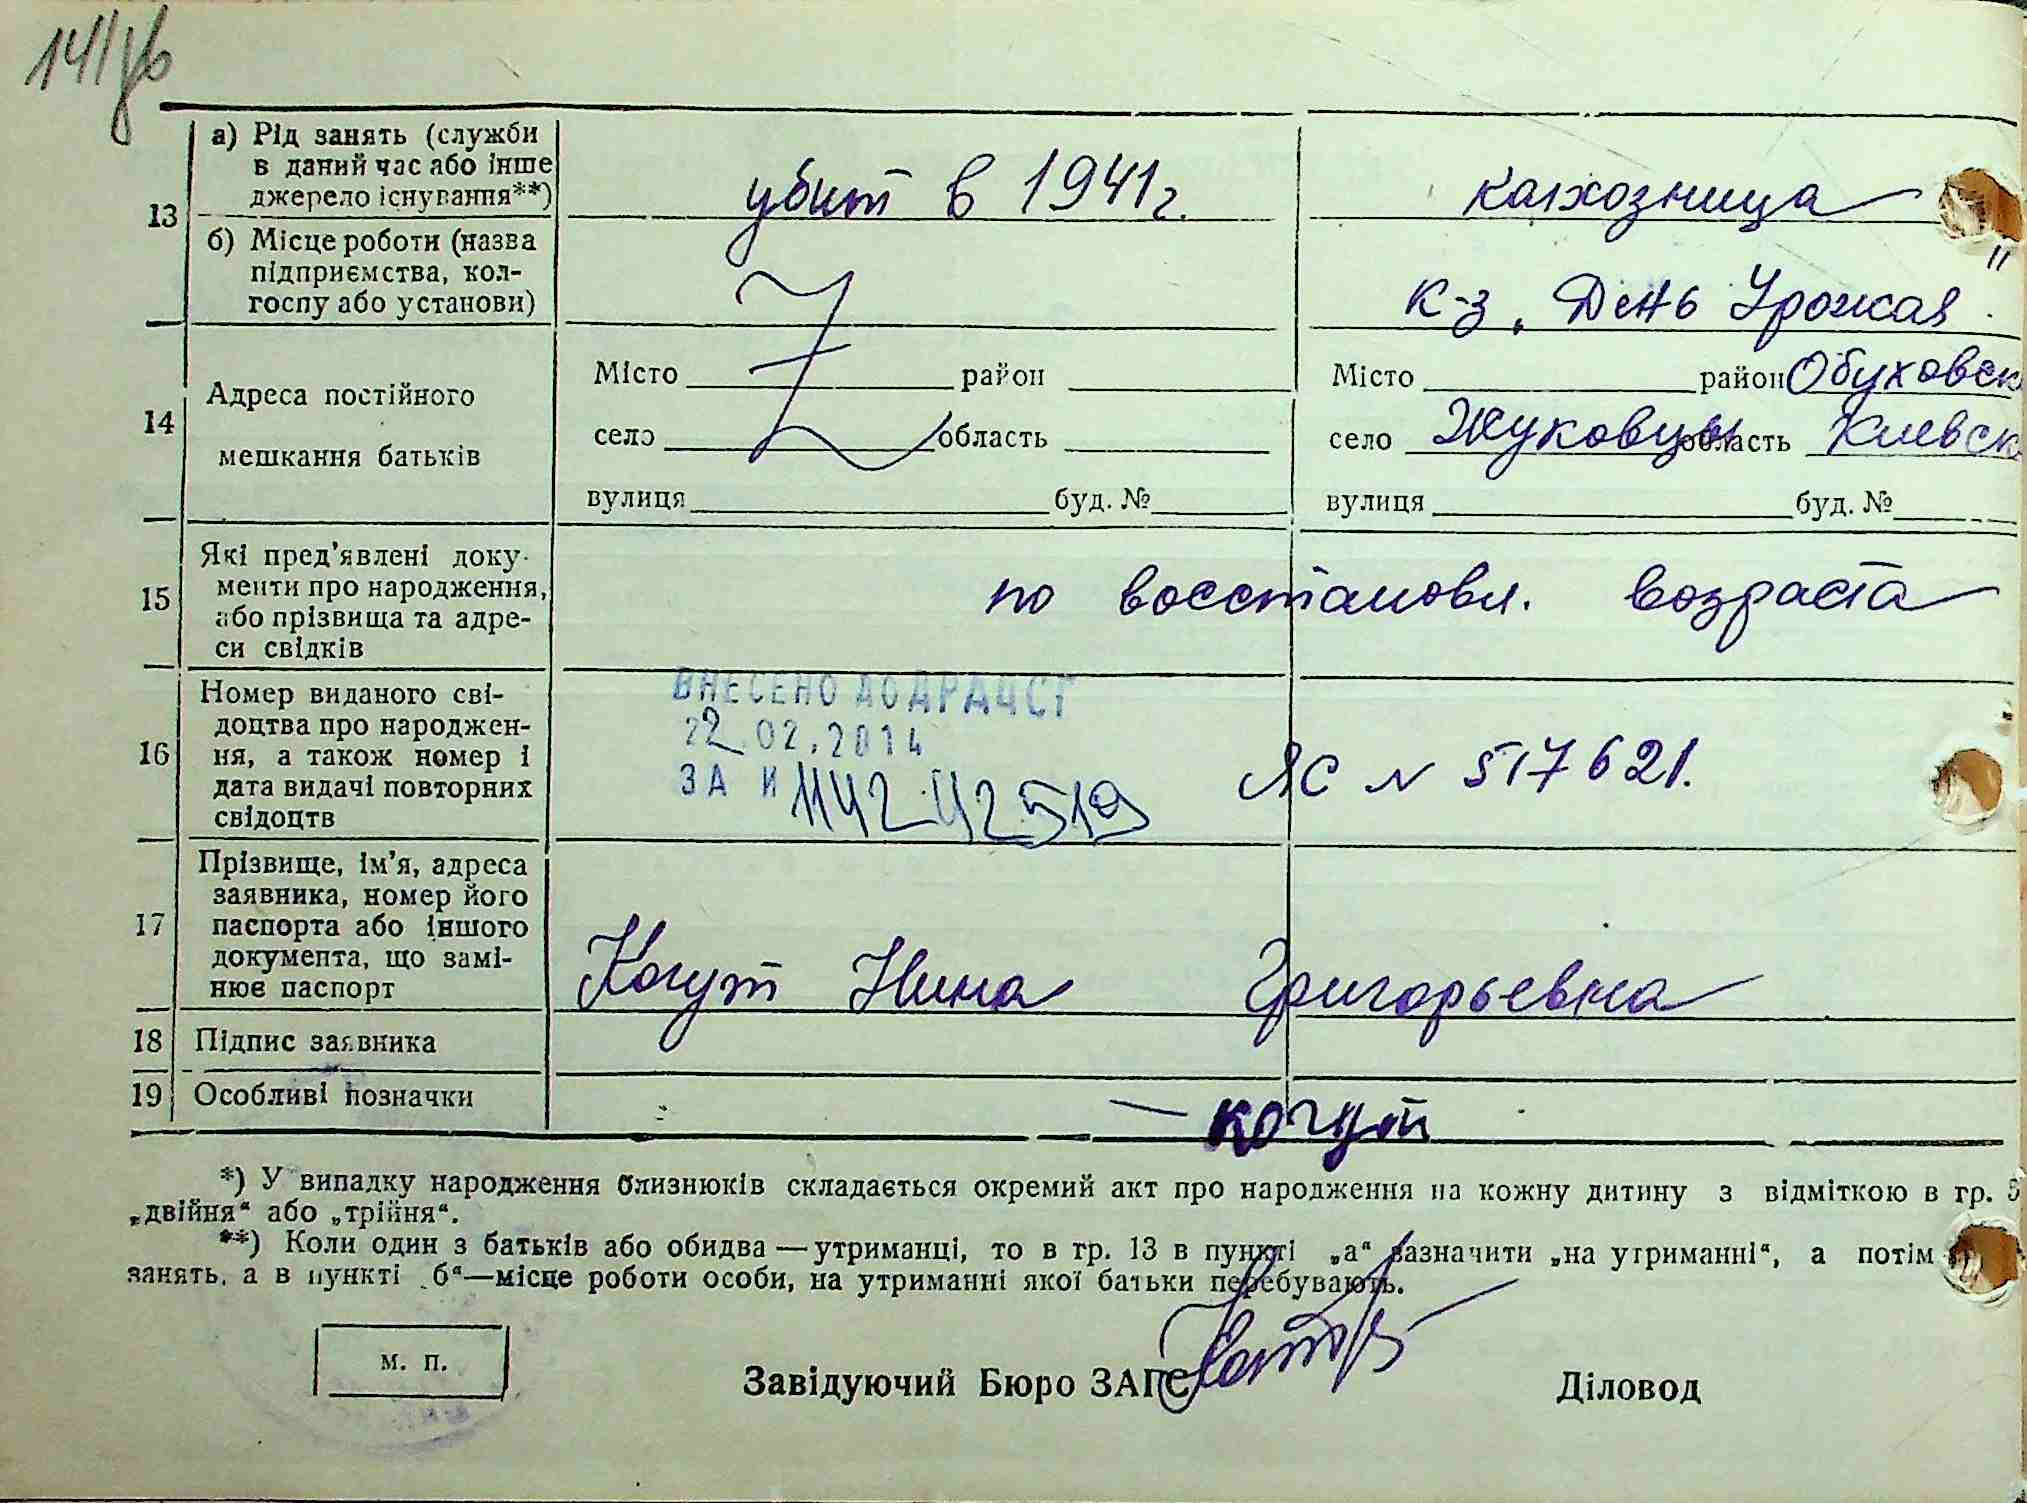 13
а) Рід занять (служби
в даний час або інше
джерело існування**)
убит в 1941 г.
колхозница
б) Місце роботи (назва
підприємства, кол-
госпу або установи)
к-з „День Урожая"
14
Адреса постійного
мешкання батьків
Місто район
село область
вулиця буд. №
Місто район Обуховск
село Жуковцы область Киевск
вулиця буд. №
15
Які пред'явлені доку-
менти про народження,
або прізвища та адре-
си свідків
по восстановл. возраста
16
Номер виданого сві-
доцтва про народжен-
ня, а також номер і
дата видачі повторних
свідоцтв
ВНЕСЕНО ДО ДРАЦСГ
22.02.2014
ЗА №114242519
ЯС N 517621.
17
Прізвище, ім'я, адреса
заявника, номер його
паспорта або іншого
документа, що замі-
нює паспорт
Когут Нина Григорьевна
18
Підпис заявника
19
Особливі позначки
– когут
*) У випадку народження близнюків складається окремий акт про народження на кожну дитину з відміткою в гр. 5
„двійня“ або „трійня“.
**) Коли один з батьків або обидва — утриманці, то в гр. 13 в пункті „а“ зазначити „на утриманні“, а потім
занять, а в пункті „б“—місце роботи особи, на утриманні якої батьки перебувають.
м. п.
Завідуючий Бюро ЗАГС
Діловод